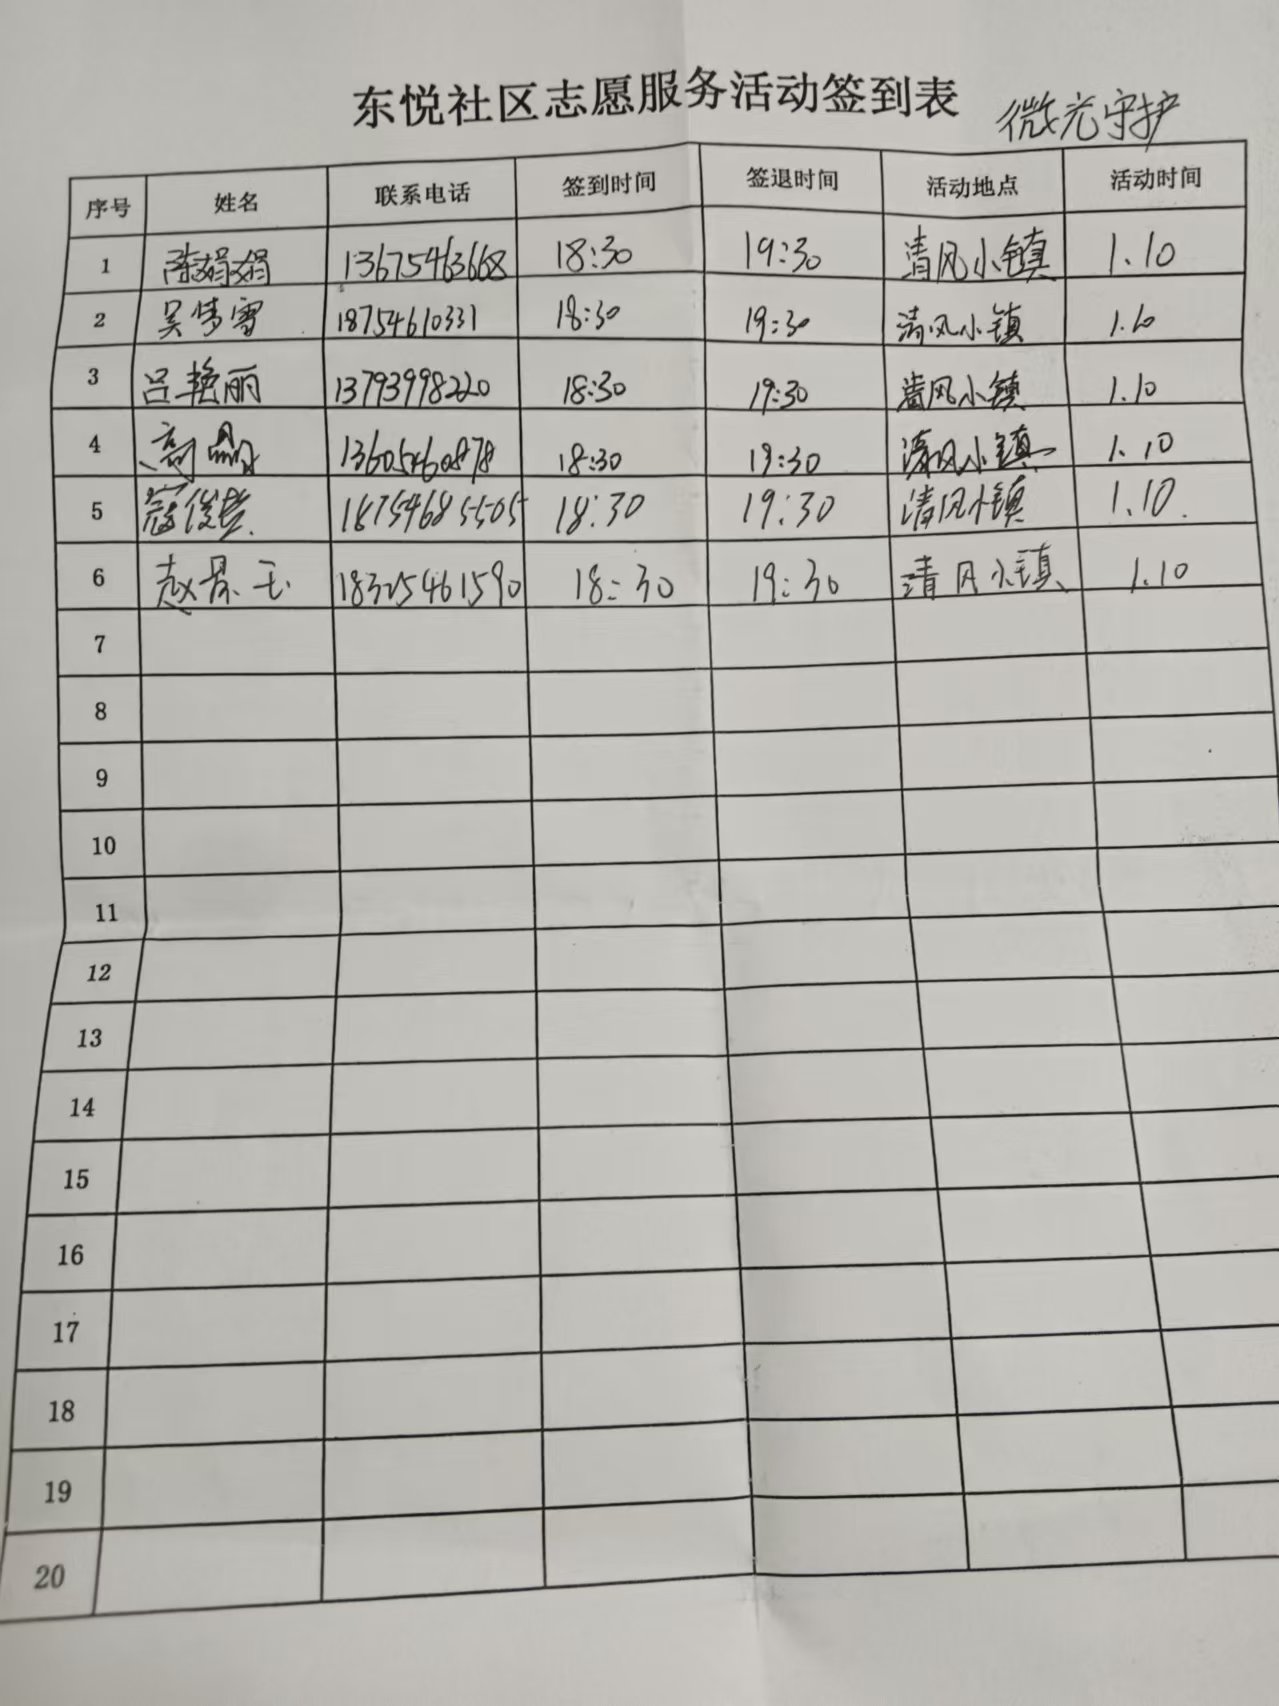 东悦社区志愿服务活动签到表 微光守护
序号 姓名 联系电话 签到时间 签退时间 活动地点 活动时间
1 陈娟娟 13675463668 18:30 19:30 清风小镇 1.10
2 吴梦雪 18754610331 18:30 19:30 清风小镇 1.10
3 吕艳丽 13793998220 18:30 19:30 清风小镇 1.10
4 高 13605460878 18:30 19:30 清风小镇 1.10
5 寇俊 18754685505 18:30 19:30 清风小镇 1.10
6 赵景玉 18325461590 18:30 19:30 清风小镇 1.10
7
8
9
10
11
12
13
14
15
16
17
18
19
20